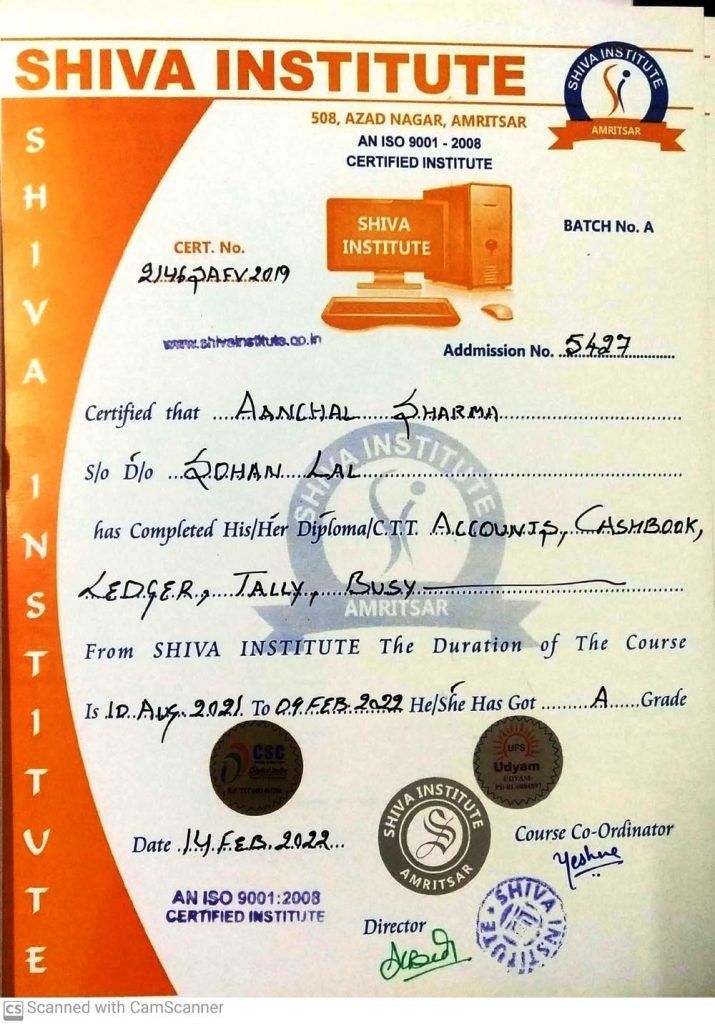 SHIVA INSTITUTE
SHIVA INSTITUTE
AMRITSAR
508, AZAD NAGAR, AMRITSAR
AN ISO 9001 - 2008
CERTIFIED INSTITUTE
SHIVA INSTITUTE
SHIVA
INSTITUTE
BATCH No. A
CERT. No.
2146JAFV2019
www.shivainstitute.co.in
Addmission No. 5427
Certified that AANCHAL SHARMA
S/o D/o SOHAN LAL
has Completed His/Her Diploma/C.T.T. ACCOUNTS, CASHBOOK,
LEDGER, TALLY, BUSY
SHIVA INSTITUTE
AMRITSAR
From SHIVA INSTITUTE The Duration of The Course
Is 10 AUG. 2021 To 09 FEB. 2022 He/She Has Got A Grade
CSC
UFS
Udyam
UDYAM-
Date 14 FEB. 2022
SHIVA INSTITUTE
S
AMRITSAR
Course Co-Ordinator
AN ISO 9001:2008
CERTIFIED INSTITUTE
Director
SHIVA INSTITUTE
CS Scanned with CamScanner